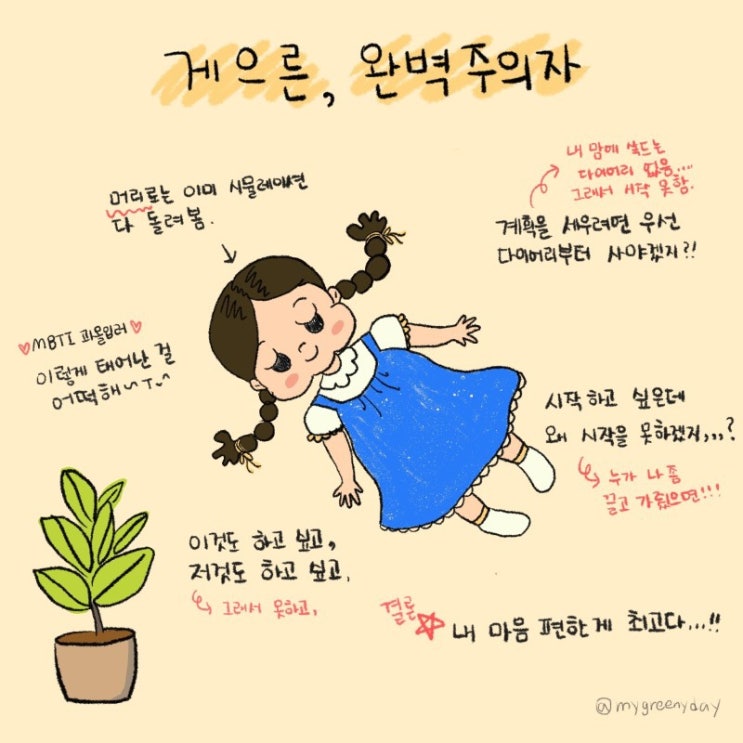 게으른, 완벽주의자
머리로는 이미 시뮬레이션
다 돌려봄.
내 맘에 쏙드는
다이어리 없음....
그래서 시작 못함.
계획을 세우려면 우선
다이어리부터 사야겠지?!
♡MBTI 과몰입러♡
이렇게 태어난 걸
어떡해~ㅜ~
시작하고 싶은데
왜 시작을 못하겠지,,,?
누가 나 좀
끌고 가줬으면!!!
이것도 하고 싶고,
저것도 하고 싶고.
그래서 못하고,
결론
내 마음 편한게 최고다...!!
@mygreenyday